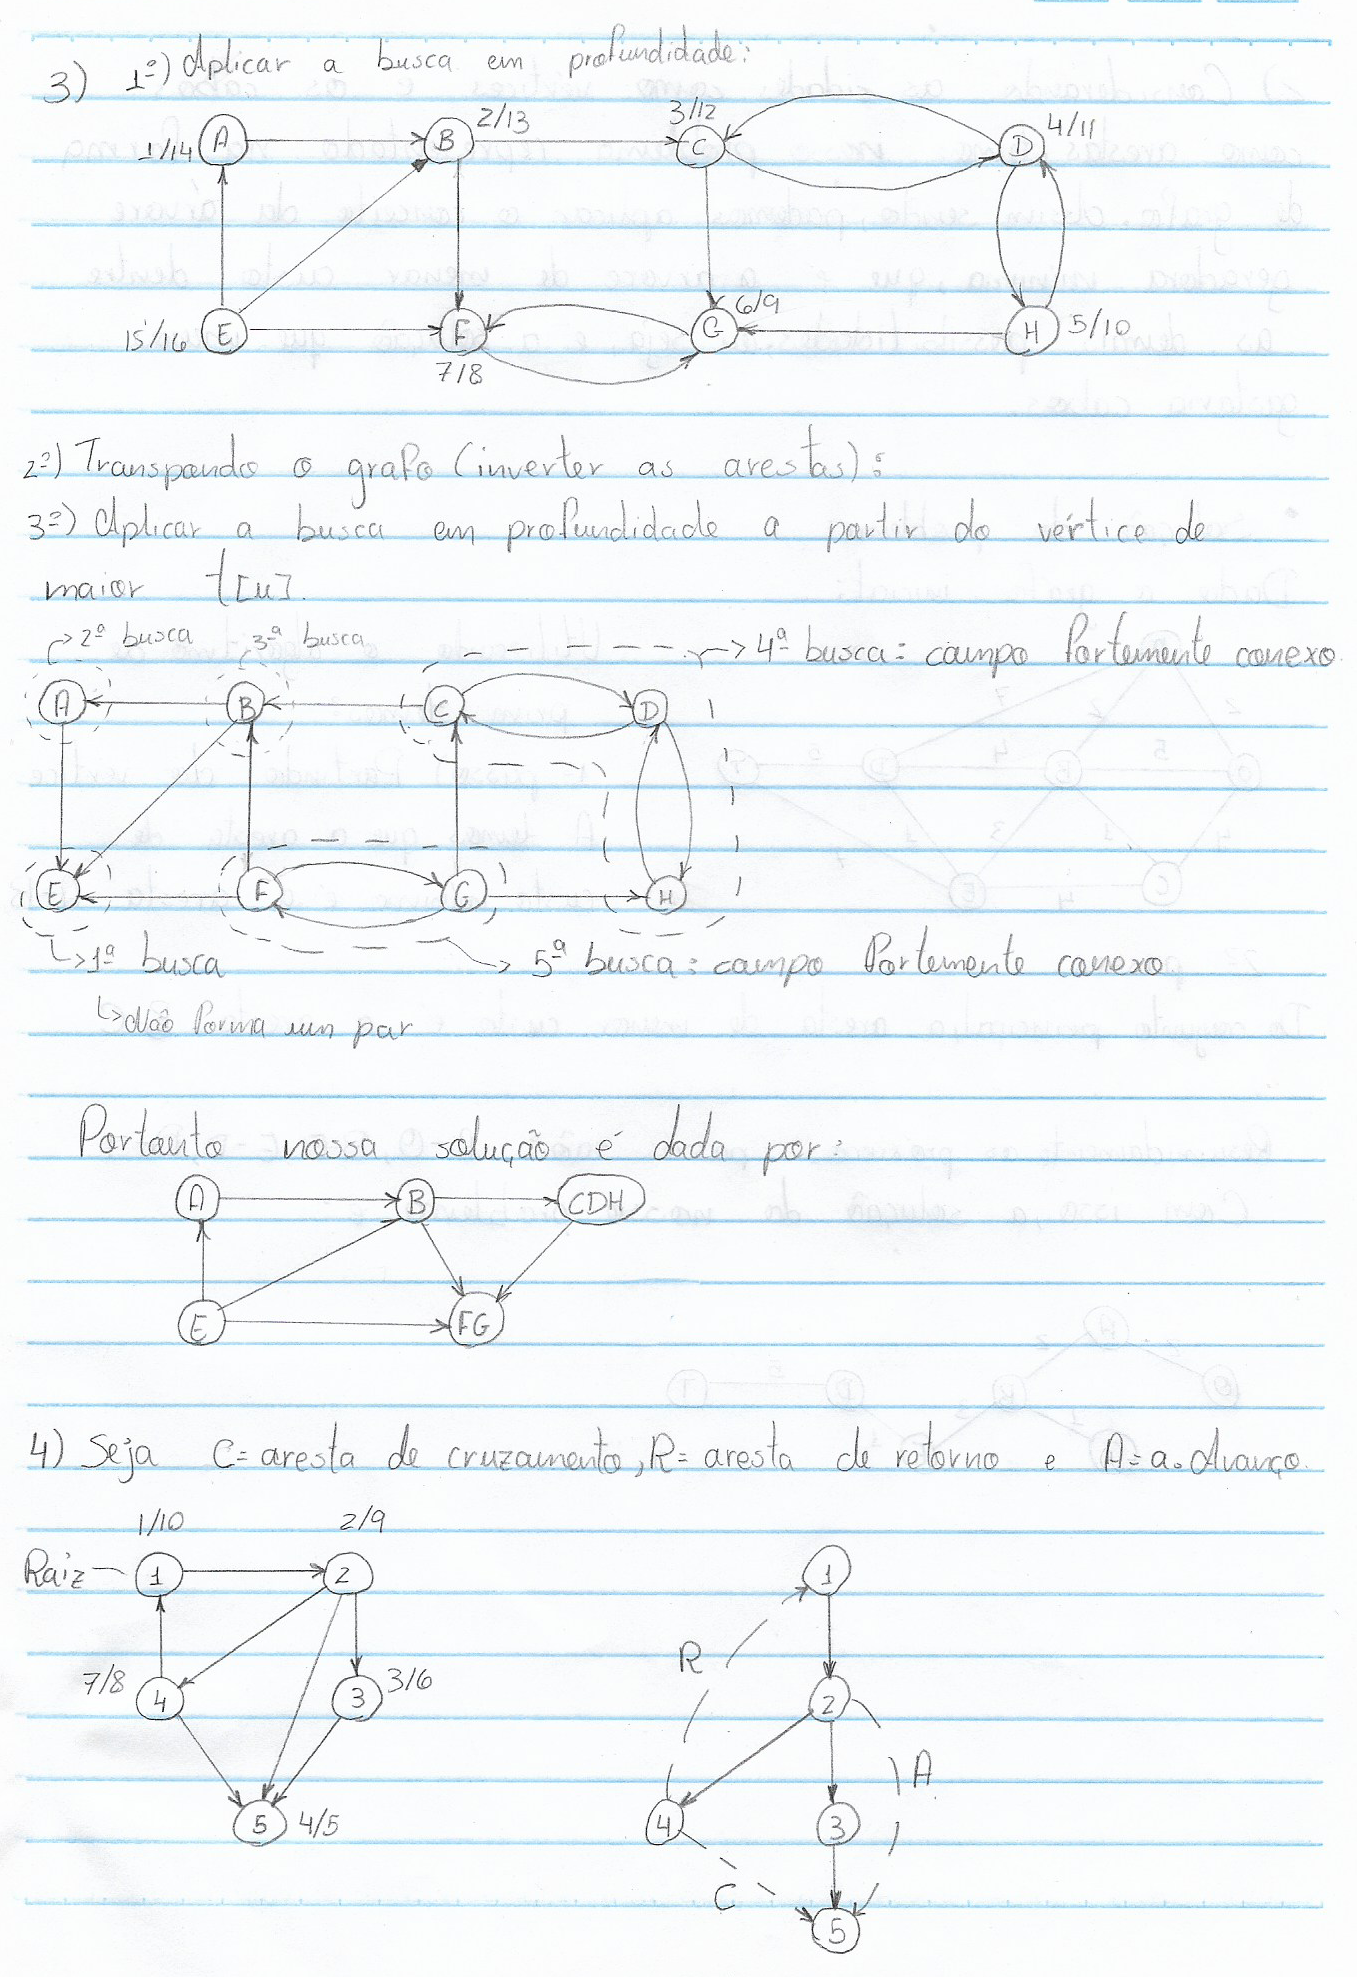 3) 1º) Aplicar a busca em profundidade:
A B C D
1/14 2/13 3/12 4/11
E F G H
15/16 7/8 6/9 5/10
2º) Transpondo o grafo (inverter as arestas):
3º) Aplicar a busca em profundidade a partir do vértice de
maior t[u].
2ª busca 3ª busca 4ª busca: campo fortemente conexo
A B C D
E F G H
1ª busca 5ª busca: campo fortemente conexo
Não forma um par
Portanto nossa solução é dada por:
A B CDH
E FG
4) Seja C= aresta de cruzamento, R= aresta de retorno e A= a. Avanço.
1/10 2/9
Raiz 1 2
7/8 4 3 3/6
5 4/5
1
R
2
A
4 3
C
5